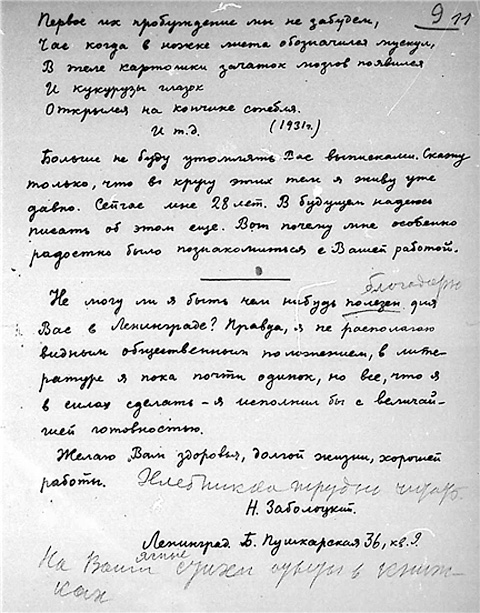 9 11
Первое их пробуждение мы не забудем,
Час когда в ножке листа обозначился мускул,
В теле картошки зачаток мозгов появился
И кукурузы глазок
Открылся на кончике стебля.
И т.д. (1931г.)
Больше не буду утомлять Вас выписками. Скажу
только, что в кругу этих тем я живу уже
давно. Сейчас мне 28 лет. В будущем надеюсь
писать об этом еще. Вот почему мне особенно
радостно было познакомиться с Вашей работой.
благодарю
Не могу ли я быть чем нибудь полезен для
Вас в Ленинграде? Правда, я не располагаю
видным общественным положением, в лите-
ратуре я пока почти одинок, но все, что я
в силах сделать – я исполнил бы с величай-
шей готовностью.
Желаю Вам здоровья, долгой жизни, хорошей
работы. Хлебникова трудно читать
Н. Заболоцкий.
Ленинград. Б. Пушкарская 36, кв. 9.
ясные
На Ваши стихи в книж-
ках